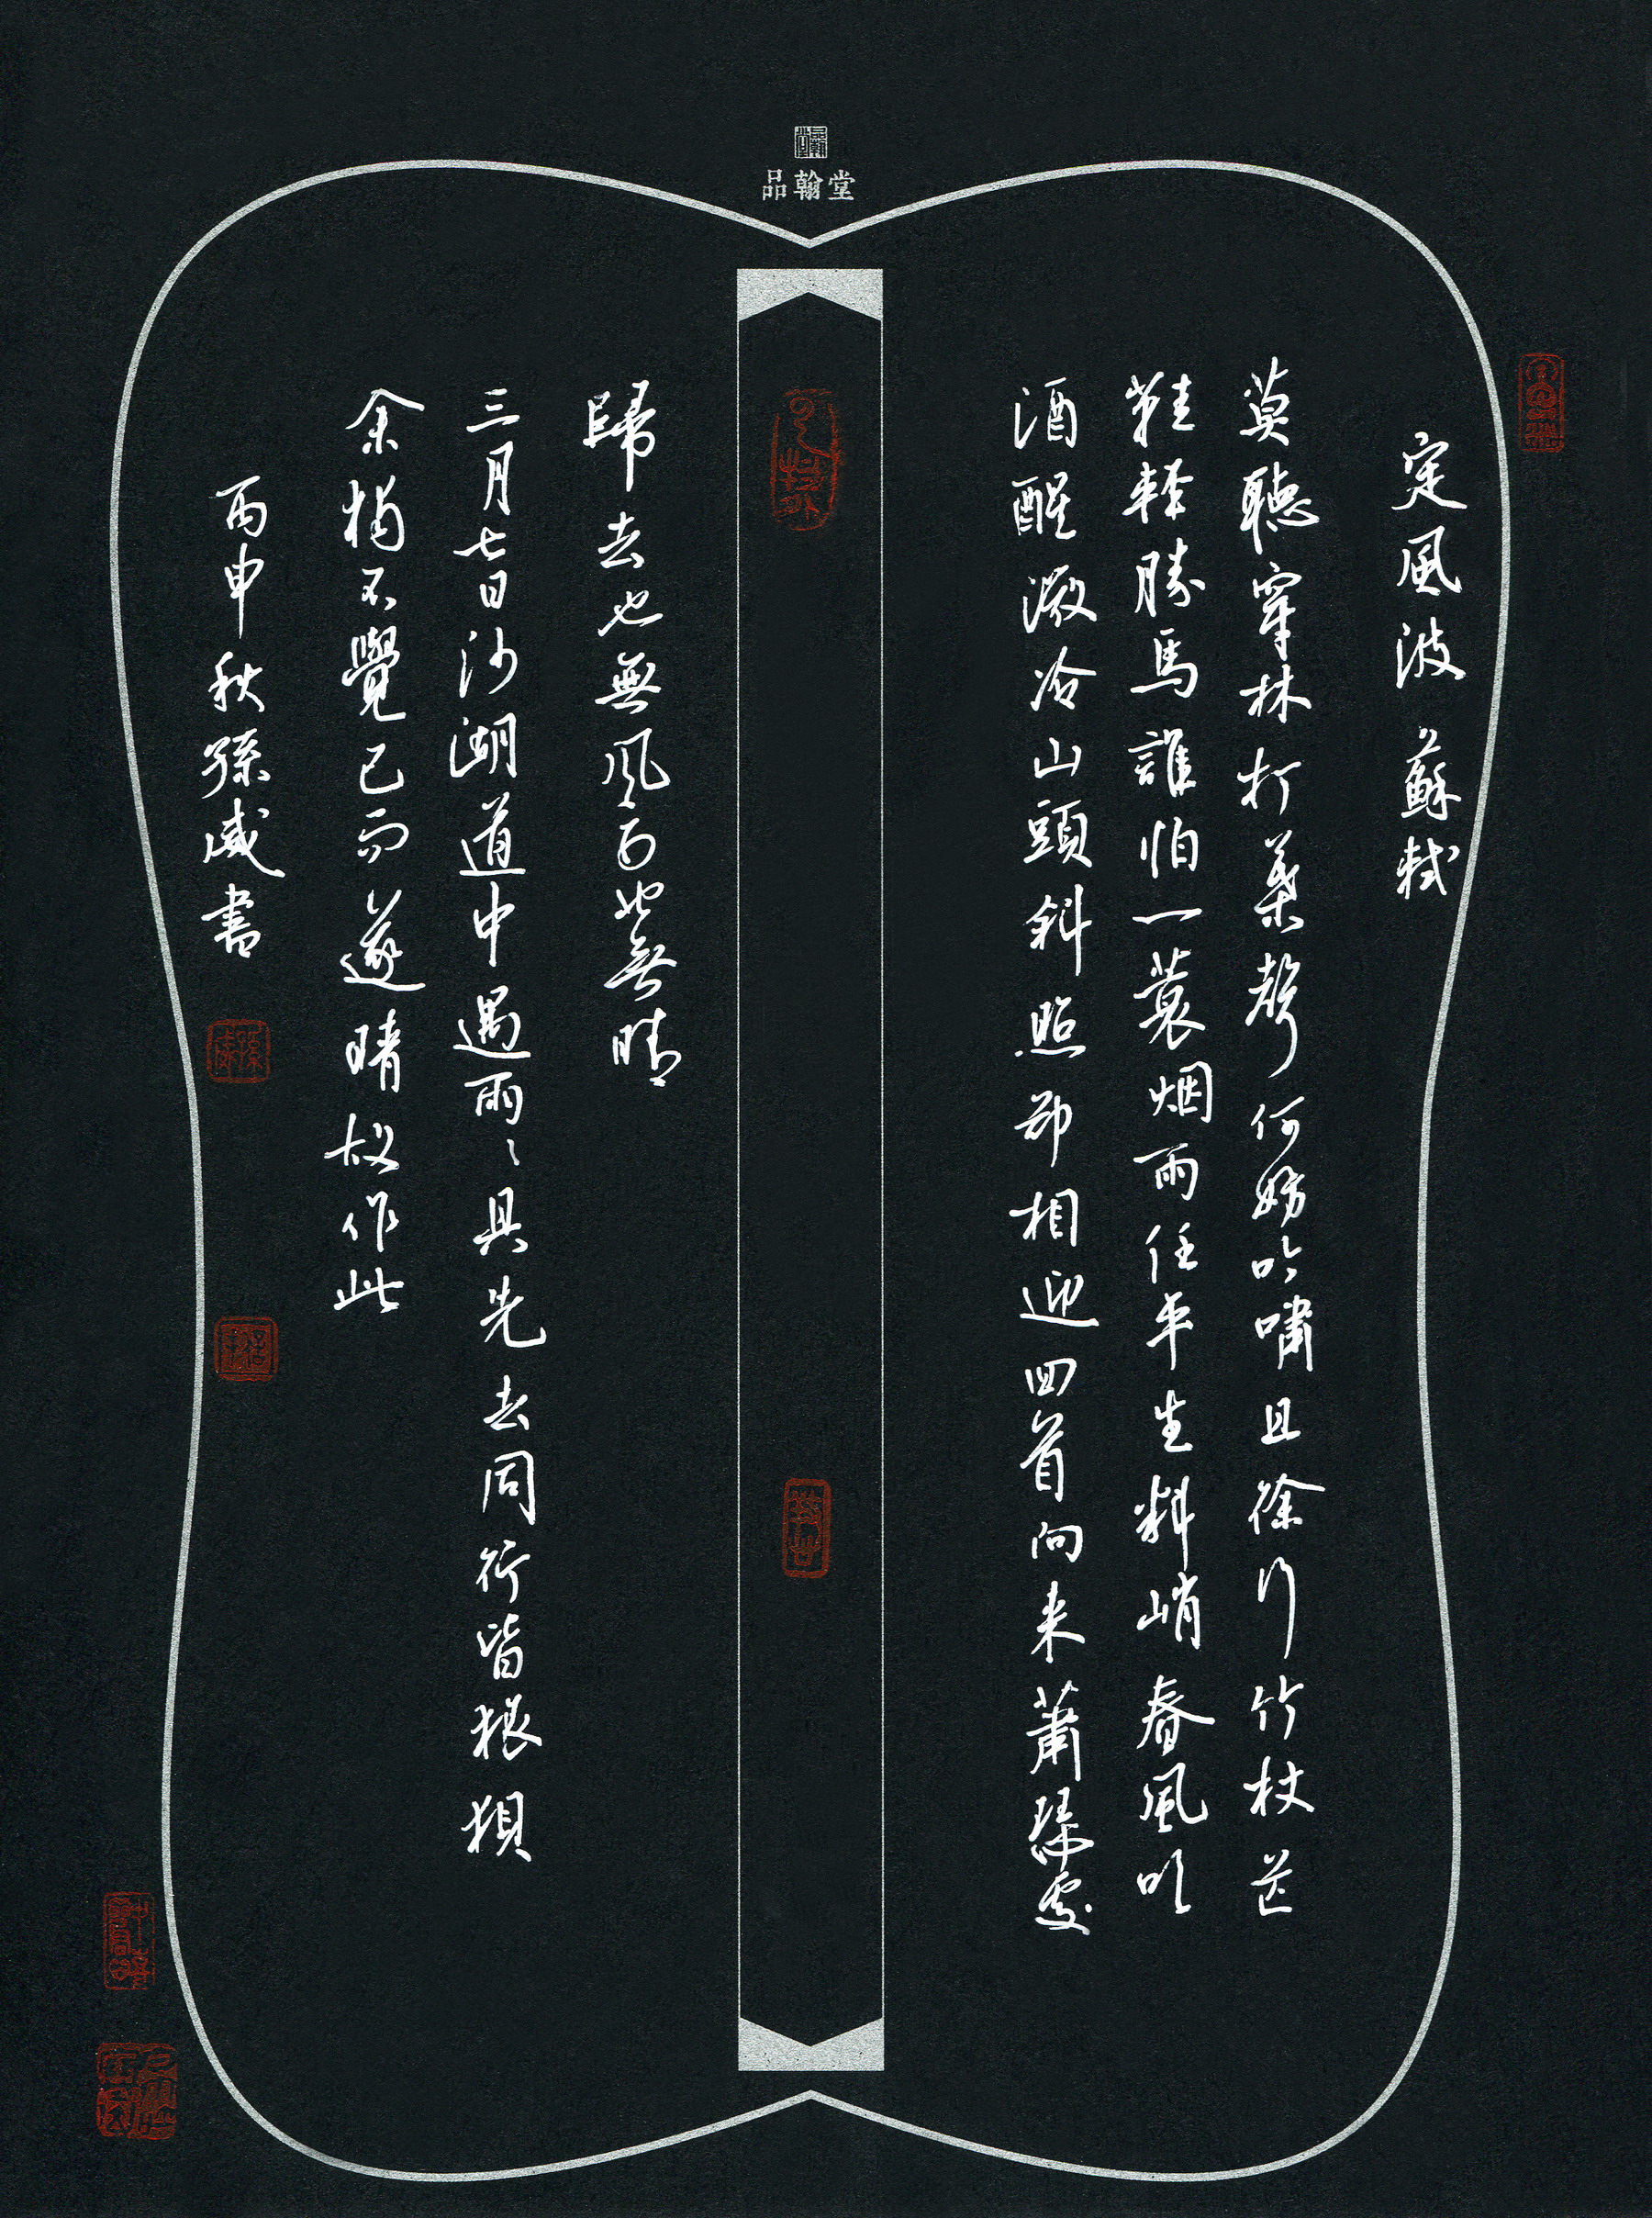 品翰堂
定風波 蘇軾
莫聽穿林打葉聲何妨吟嘯且徐行竹杖芒
鞋輕勝馬誰怕一蓑烟雨任平生料峭春風吹
酒醒微冷山頭斜照却相迎回首向来蕭瑟處
歸去也無風雨也無晴
三月七日沙湖道中遇雨〻具先去同行皆狼狽
余獨不覺已而遂晴故作此
丙申秋孫威書
孫威